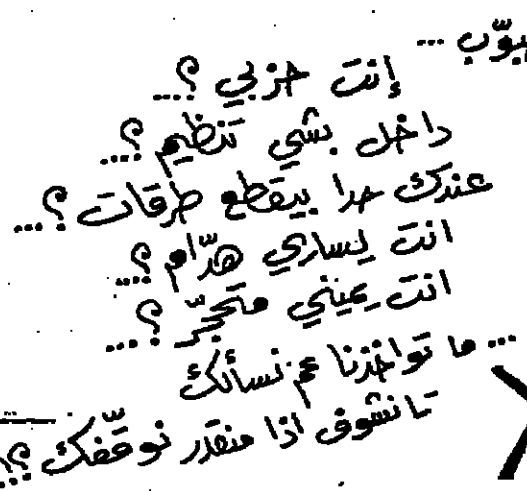 ... 
إنت حزبي ؟...
داخل بشي تنظيم ؟...
عندك حدا بيقطع طرقات ؟...
انت يساري هدّام ؟...
انت يميني متحجّر ؟...
... ما تواخذنا عم نسألك
تا نشوف اذا منقدر نوقّفك ؟!